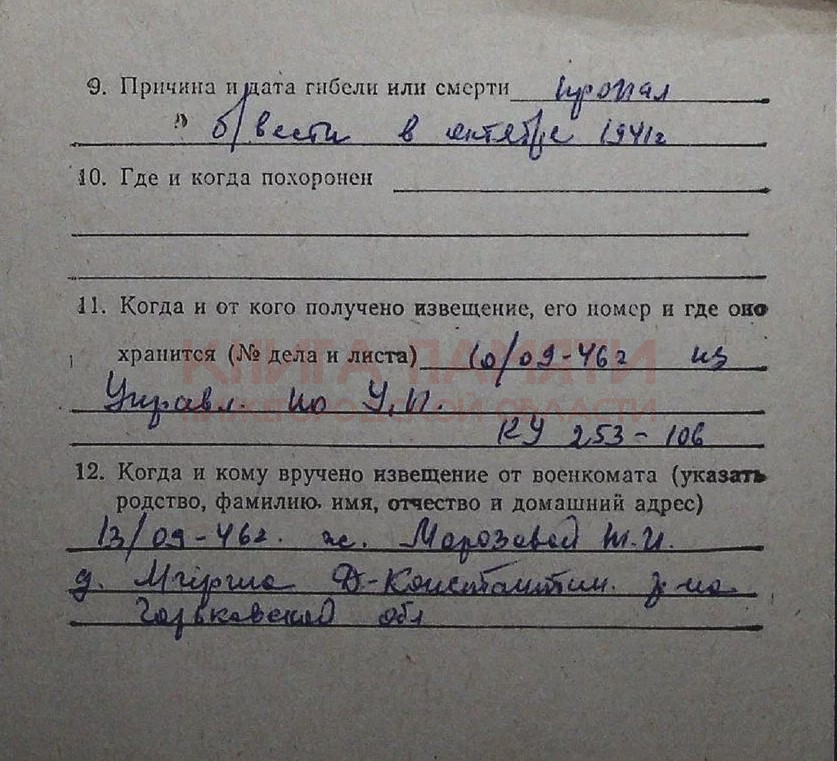 9. Причина и дата гибели или смерти пропал
б/вести в октябре 1941г
10. Где и когда похоронен
11. Когда и от кого получено извещение, его номер и где оно
хранится (№ дела и листа) 10/09-46г из
КНИГА ПАМЯТИ
Управл. по У.П.
НИЖЕГОРОДСКОЙ ОБЛАСТИ
КУ 253-106
12. Когда и кому вручено извещение от военкомата (указать
родство, фамилию, имя, отчество и домашний адрес)
13/09-46г. ж. Морозовой Т.И.
д. Д-Константин. р-на
Горьковской обл